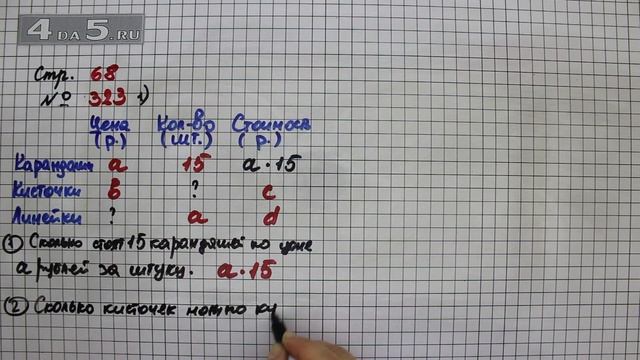 4 DA 5.RU
Стр. 68
№ 323 1)
Цена Кол-во Стоимость
(р.) (шт.) (р.)
Карандаши a 15 a · 15
Кисточки b ? c
Линейки ? a d
① Сколько стоят 15 карандашей по цене
a рублей за штуку. a · 15
② Сколько кисточек можно ку